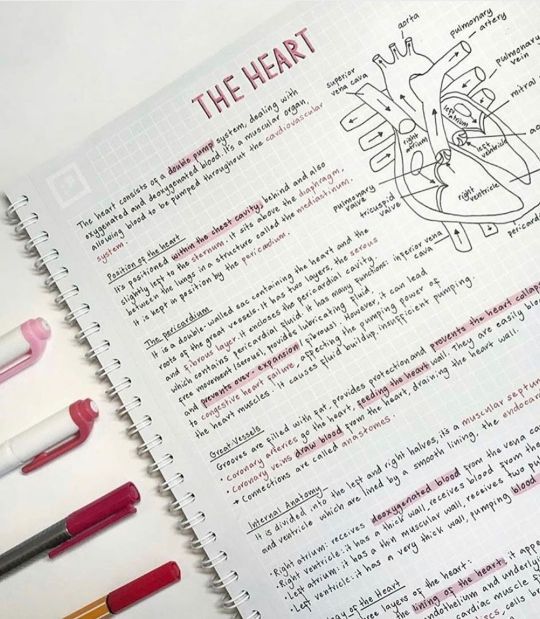 THE HEART
The heart consists of a double pump system, dealing with
oxygenated and deoxygenated blood. It's a muscular organ,
allowing blood to be pumped throughout the cardiovascular
system.
Position of the heart
It's positioned within the chest cavity, behind and also
slightly left to the sternum. It sits above the diaphragm,
between the lungs in a structure called the mediastinum.
It is kept in position by the pericardium.
The pericardium
It is a double-walled sac containing the heart and the
roots of the great vessels. It has two layers, the serous
and fibrous layer. It encloses the pericardial cavity,
which contains pericardial fluid. It has many functions:
free movement (serous), provides lubricating fluid,
and prevents over-expansion (fibrous). However, it can lead
to congestive heart failure, affecting the pumping power of
the heart muscles. It causes fluid buildup, insufficient pumping.
Great Vessels
Grooves are filled with fat, provides protection and prevents the heart collaps
• Coronary arteries go to the heart, feeding the heart wall. They are easily bloc
• Coronary veins draw blood from the heart, draining the heart wall.
→ Connections are called anastomes.
Internal Anatomy
It is divided into the left and right halves, it's a muscular septum
and ventricle which are lined by a smooth lining, the endocard
• Right atrium: receives deoxygenated blood from the vena cava
• Right ventricle: it has a thick wall, receives blood from the
• Left atrium: it has a thin muscular wall, receives two pul
• Left ventricle: it has a very thick wall, pumping blood
of the Heart
ree layers of the heart:
the lining of the heart, it appe
endothelium and underly
cardiac muscle
discs, cells br
aorta
pulmonary
artery
pulmonary
vein
mitral
superior
vena cava
right
atrium
left
atrium
left
ventricle
right
ventricle
pulmonary
valve
tricuspid
valve
inferior vena
cava
perica